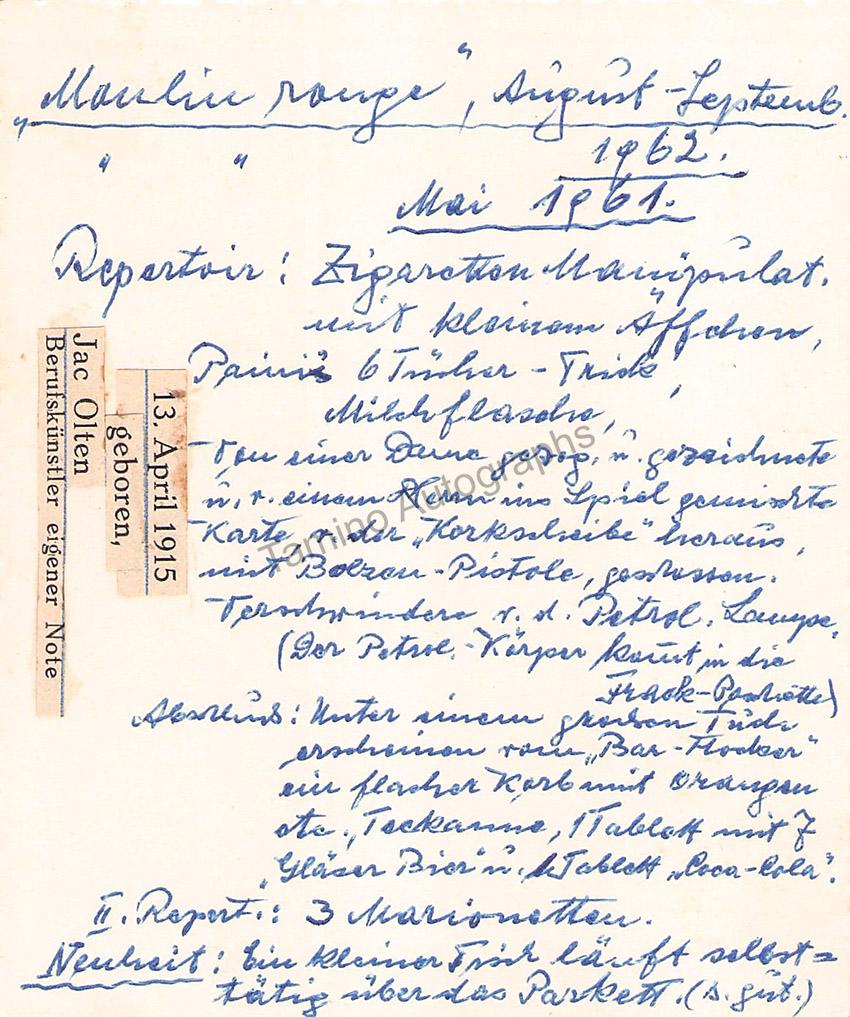 „Moulin rouge", August-Septemb.
" " 1962.
Mai 1961.
Repertoir: Zigaretten Manipulat.
mit kleinem Äffchen,
6 Tücher-Trick,
Milchflasche,
Von einer Dame gezog. u. gezeichnete
u. v. einem Herrn ins Spiel gemischte
Karte v. der „Korkscheibe" heraus,
mit Bolzen-Pistole, geschossen.
Verschwinden v. d. Petrol. Lampe,
(Der Petrol.-Körper komt in die
Frack-Poschette)
Abschluss: Unter einem grossen Tuch
erscheinen vom „Bar-Hocker"
ein flacher Korb mit Orangen
etc., Teekanne, 1 Tablett mit 7
„Gläser Bier" u. 1 Tablett „Coca-Cola".
II. Repert.: 3 Marionetten.
Neuheit: Ein kleiner Tisch läuft selbst=
tätig über das Parkett. (s. gut.)
13. April 1915
geboren,
Jac Olten
Berufskünstler eigener Note
Tamino Autographs